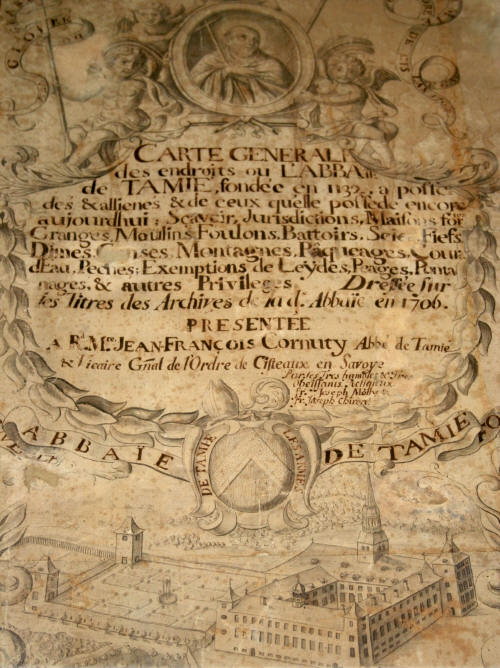 CARTE GENERALE
des endroits ou L'ABBAIE
de TAMIE, fondée en 1132, a posse
dés & allienés & de ceux quelle possede encore
aujourdhui; Sçavoir, Jurisdictions, Maisons for
Granges, Moulins, Foulons, Battoirs, Scie, Fiefs,
Dimes, Censes, Montagnes, Pâqueages, Cour
d'Eau, Peches; Exemptions de Leydes, Péages, Ponta
nages, & autres Privileges. Dressée sur
les titres des Archives de lad. Abbaïe en 1706.
PRESENTÉE
A R.me JEAN-FRANÇOIS Cornuty Abbé de Tamié
& Vicaire Gñal de l'Ordre de Cisteaux en Savoye
Par ses Tres humbles & Tres
obeissants Religieux
fr. Joseph
Fr. Joseph
ABBAÏE DE TAMIE
DE TAMIE
LES ARMES